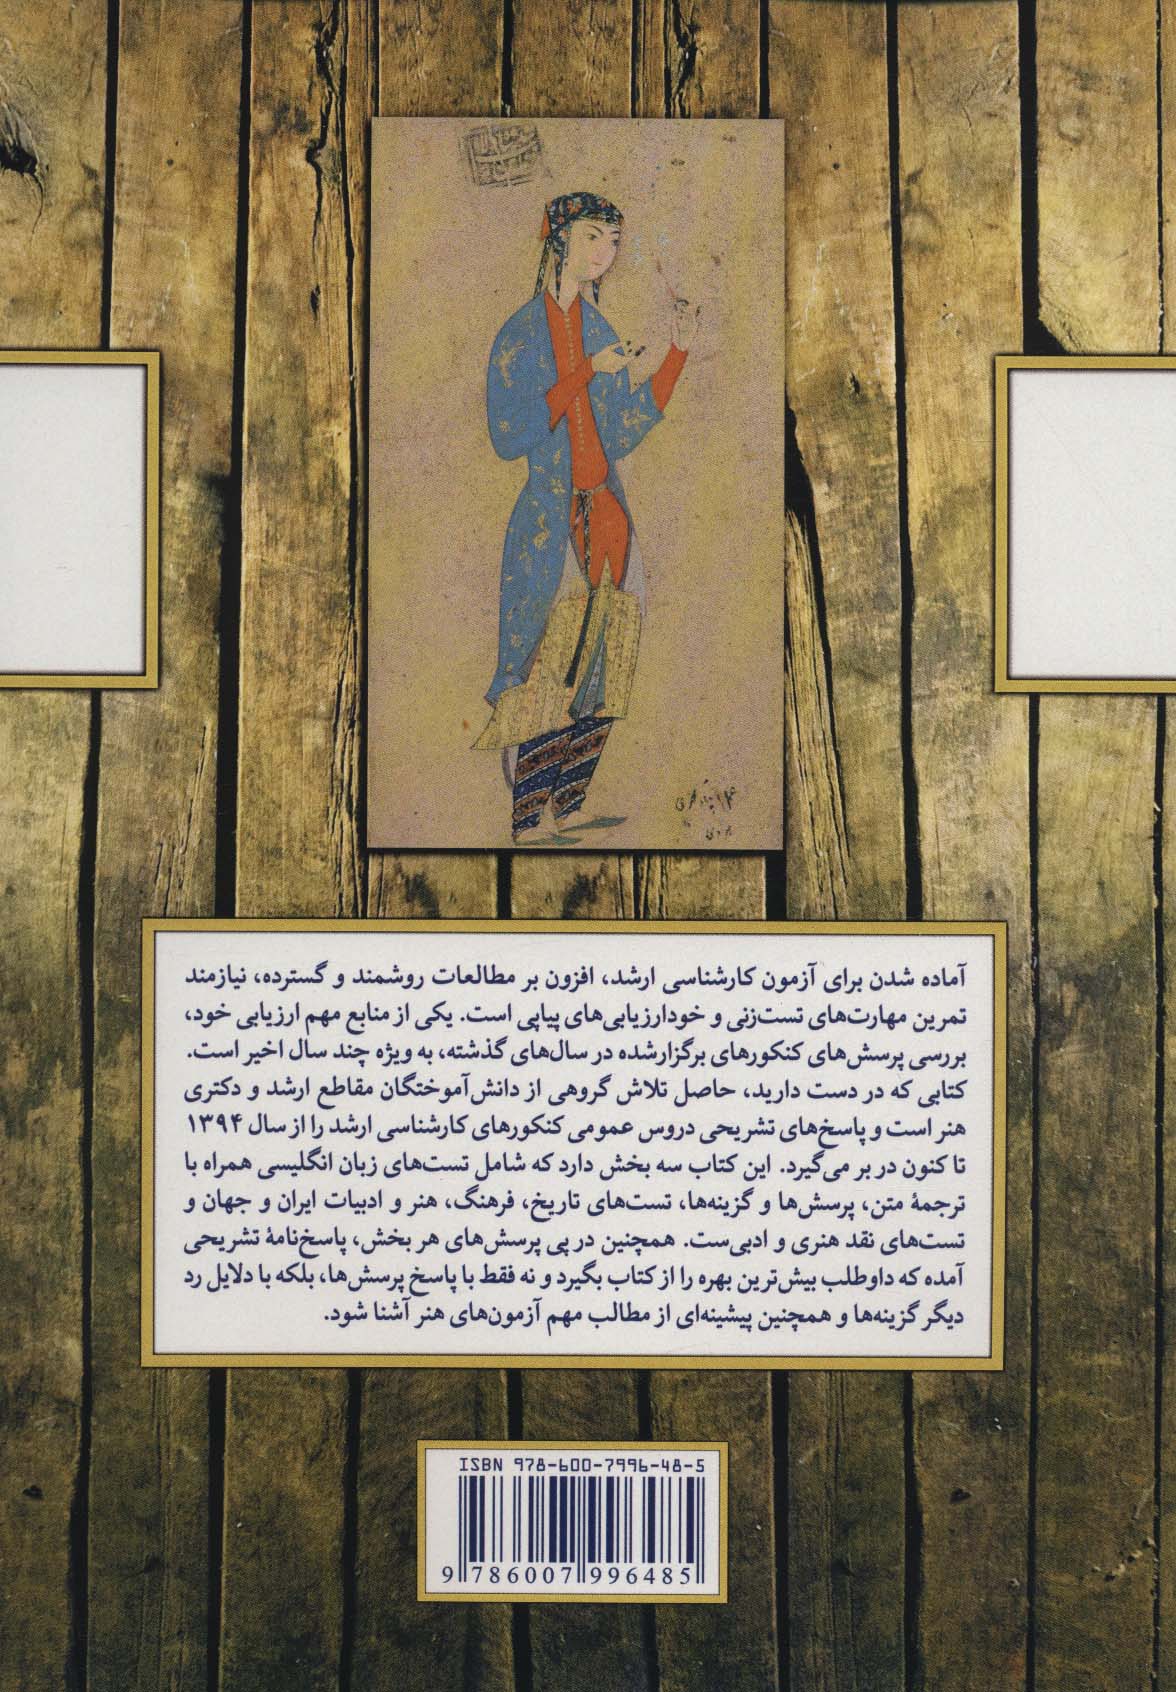 آماده شدن برای آزمون کارشناسی ارشد، افزون بر مطالعات روشمند و گسترده، نیازمند
تمرین مهارت‌های تست‌زنی و خودارزیابی‌های پیاپی است. یکی از منابع مهم ارزیابی خود،
بررسی پرسش‌های کنکورهای برگزارشده در سال‌های گذشته، به ویژه چند سال اخیر است.
کتابی که در دست دارید، حاصل تلاش گروهی از دانش‌آموختگان مقاطع ارشد و دکتری
هنر است و پاسخ‌های تشریحی دروس عمومی کنکورهای کارشناسی ارشد را از سال ۱۳۹۴
تا کنون در بر می‌گیرد. این کتاب سه بخش دارد که شامل تست‌های زبان انگلیسی همراه با
ترجمهٔ متن، پرسش‌ها و گزینه‌ها، تست‌های تاریخ، فرهنگ، هنر و ادبیات ایران و جهان و
تست‌های نقد هنری و ادبی‌ست. همچنین در پی پرسش‌های هر بخش، پاسخ‌نامهٔ تشریحی
آمده که داوطلب بیش‌ترین بهره را از کتاب بگیرد و نه فقط با پاسخ پرسش‌ها، بلکه با دلایل رد
دیگر گزینه‌ها و همچنین پیشینه‌ای از مطالب مهم آزمون‌های هنر آشنا شود.
ISBN 978-600-7996-48-5
9 786007 996485